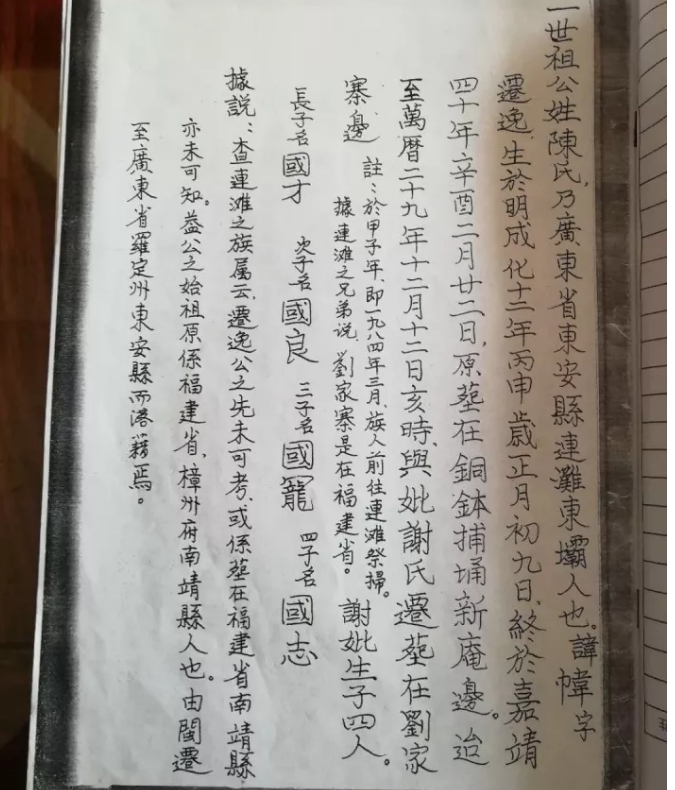 一世祖公姓陳氏,乃廣東省東安縣連灘東壩人也。諱幃字
遷逸,生於明成化十二年丙申歲正月初九日,終於嘉靖
四十年辛酉二月廿二日,原塟在銅鉢捕埇新庵邊。迨
至萬曆二十九年十二月十二日亥時,與妣謝氏遷塟在劉家
寨邊 註:於甲子年,即一九八四年三月,族人前往連滩祭掃。
據連滩之兄弟説,劉家寨是在福建省。 謝妣生子四人。
長子名國才 次子名國良 三子名國寵 四子名國志
據説:查連滩之族属云,遷逸公之先未可考,或係塟在福建省南靖縣
亦未可知。益公之始祖原係福建省,樟州府南靖縣人也。由閩遷
至廣東省羅定州東安縣西港籍焉。